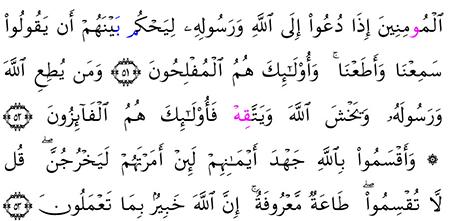 ٱلْمُومِنِينَ إِذَا دُعُوا۟ إِلَى ٱللَّهِ وَرَسُولِهِۦ لِيَحْكُم بَيْنَهُمْ أَن يَقُولُوا۟
سَمِعْنَا وَأَطَعْنَاۚ وَأُو۟لَٰٓئِكَ هُمُ ٱلْمُفْلِحُونَ ٥١ وَمَن يُطِعِ ٱللَّهَ
وَرَسُولَهُۥ وَيَخْشَ ٱللَّهَ وَيَتَّقِهْ فَأُو۟لَٰٓئِكَ هُمُ ٱلْفَآئِزُونَ ٥٢
۞ وَأَقْسَمُوا۟ بِٱللَّهِ جَهْدَ أَيْمَٰنِهِمْ لَئِنْ أَمَرْتَهُمْ لَيَخْرُجُنَّۖ قُل
لَّا تُقْسِمُوا۟ۖ طَاعَةٌ مَّعْرُوفَةٌۚ إِنَّ ٱللَّهَ خَبِيرٌۢ بِمَا تَعْمَلُونَ ٥٣